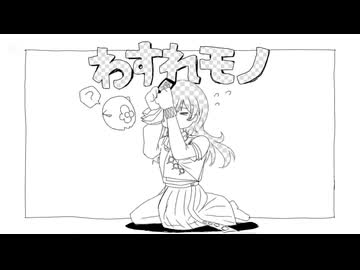 わすれモノ
?